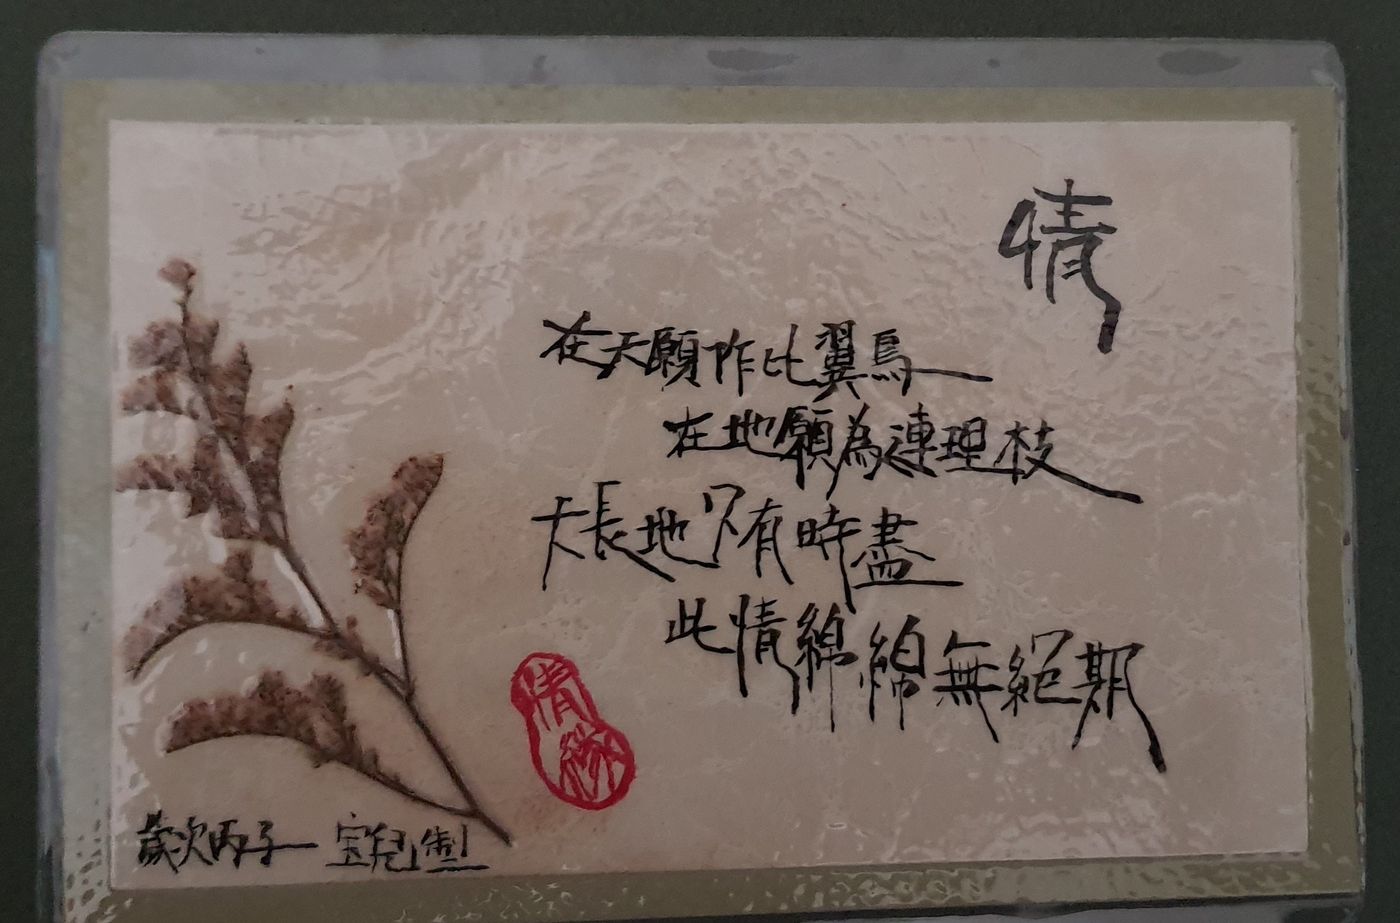 情
在天願作比翼鳥
在地願為連理枝
天長地久有時盡
此情綿綿無絕期
情緣
歲次丙子 宝兒製